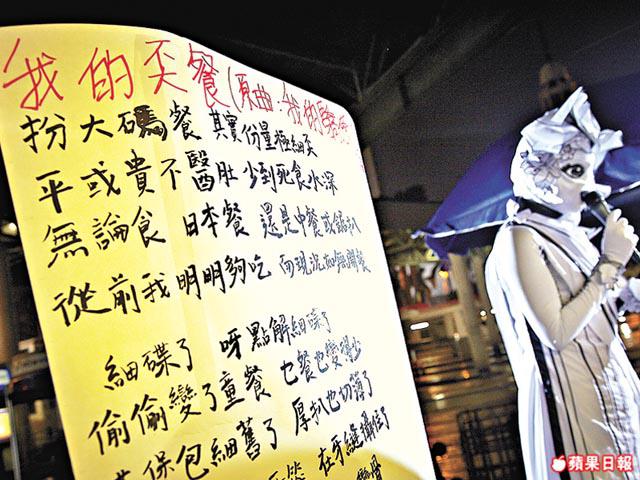 我的歪餐(原曲:我的驕傲)
扮大碼餐 其實份量極細歪
平或貴不醫肚 少到死食水深
無論食 日本餐 還是中餐或鋸扒
從前我明明夠吃 而現況如無
細碟了 呀點解細碟了
偷偷變了童餐 乜餐也變得少
保包細舊了 厚扒也切薄了
在牙縫攝住了
蘋果日報